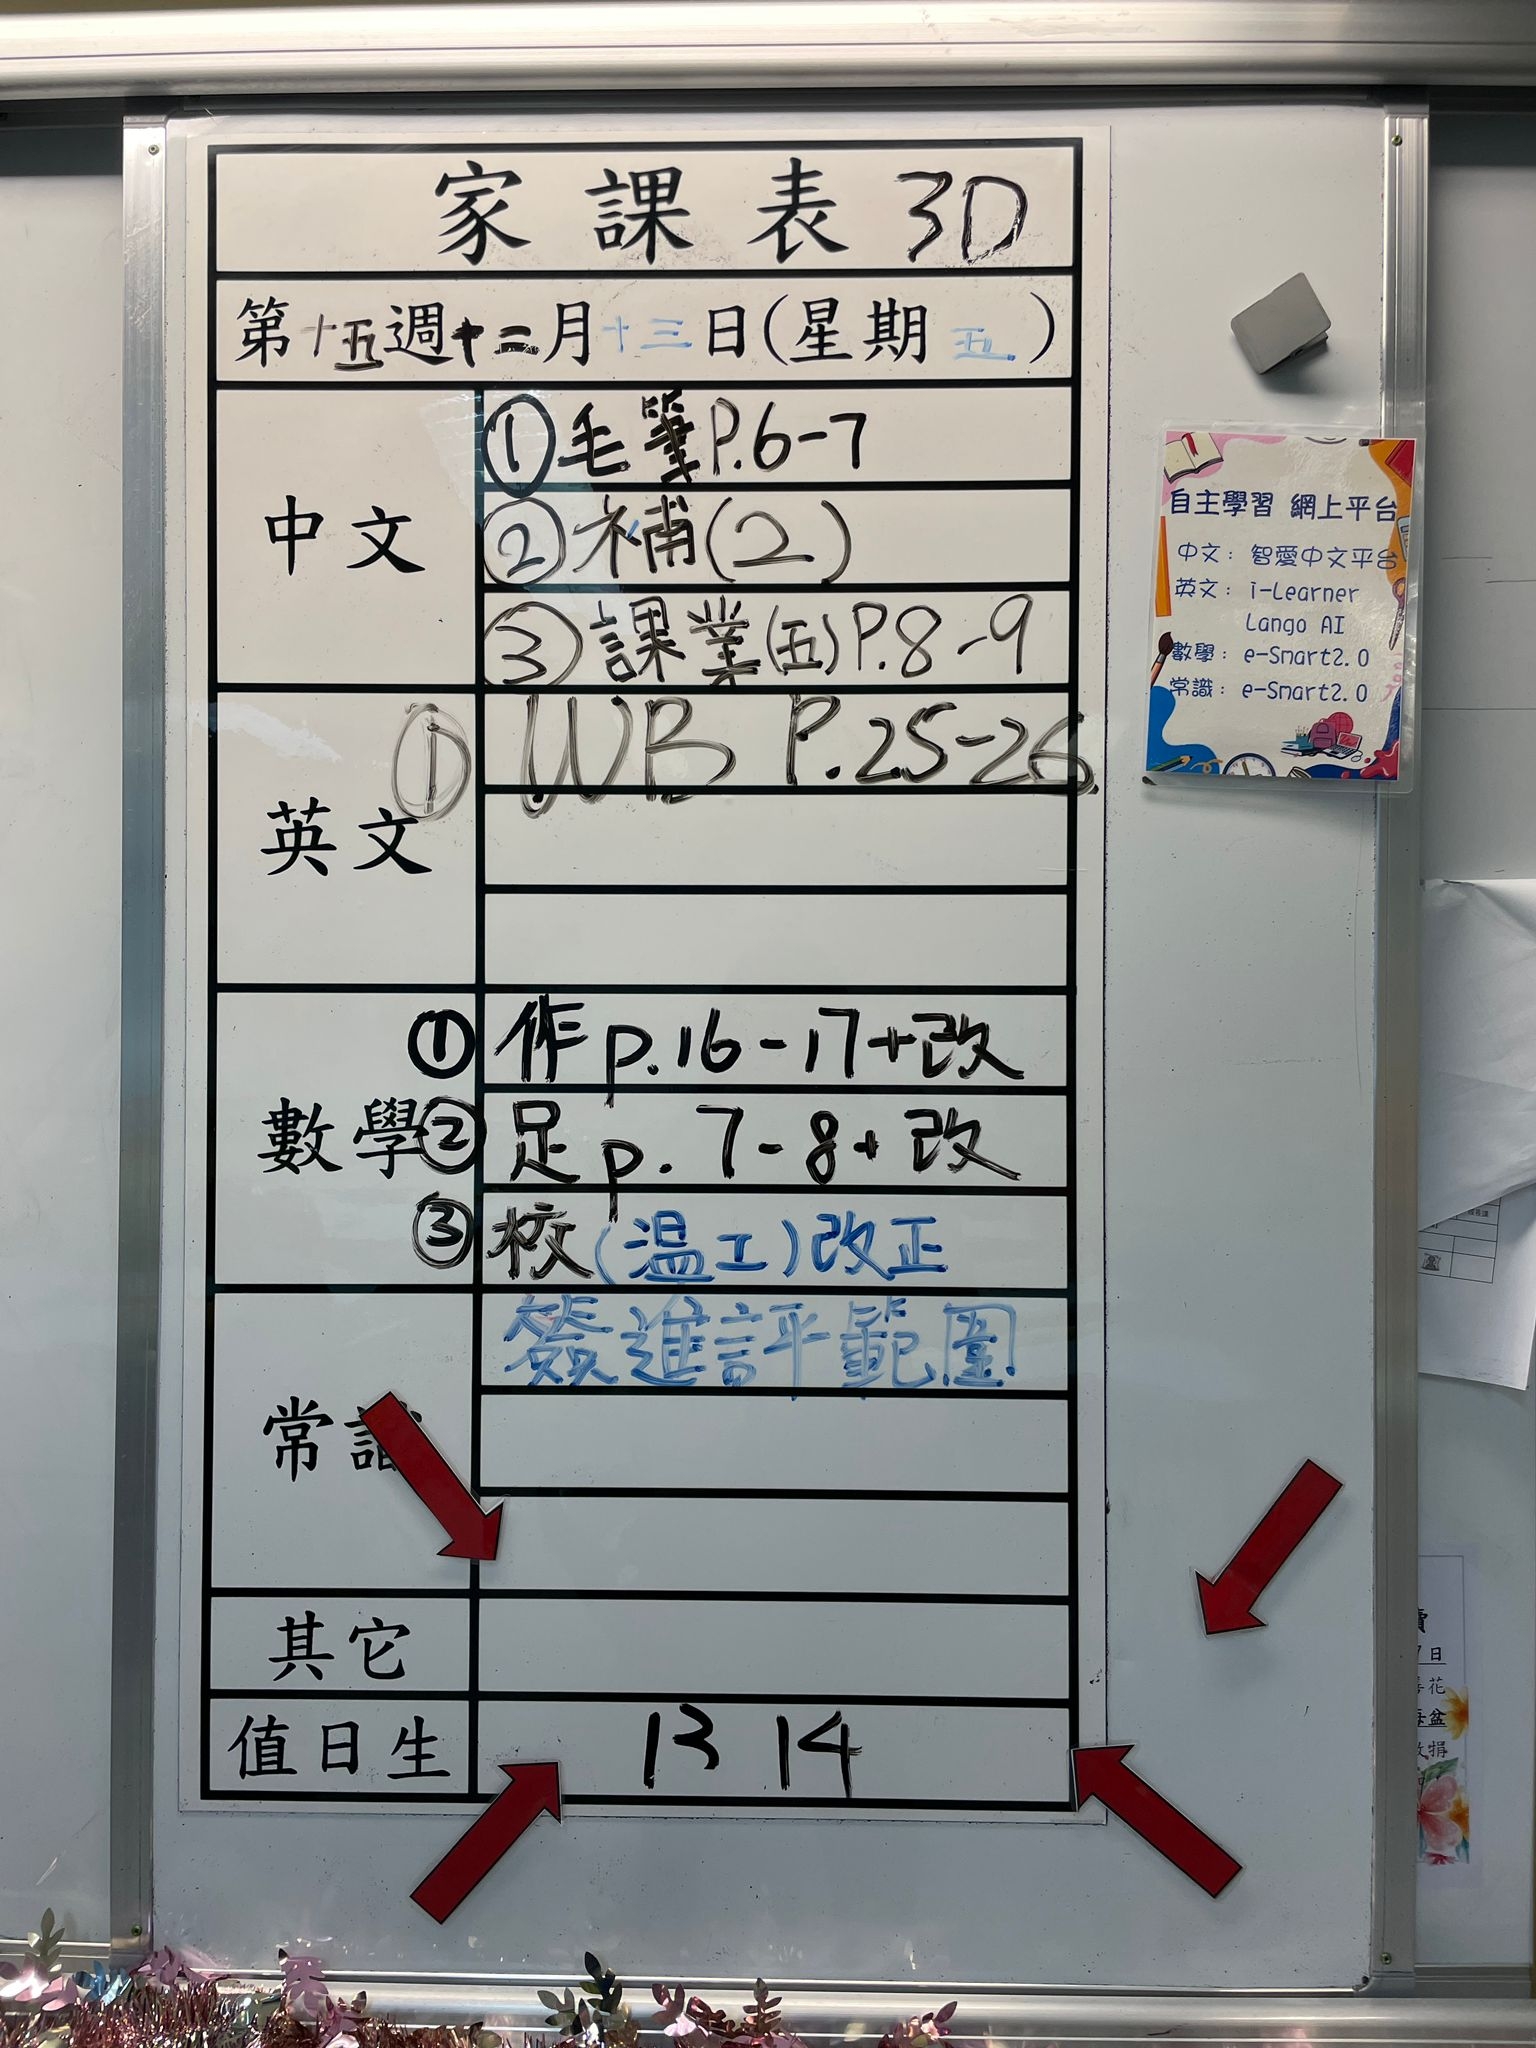 家課表 3D
第十五週十二月十三日(星期五)
中文
①毛筆P.6-7
②補(2)
③課業(五)P.8-9
英文
① WB P.25-26
數學
① 作p.16-17+改
② 足p.7-8+改
③ 校(温工)改正
常識
簽進評範圍
其它
值日生
13 14
自主學習 網上平台
中文：智愛中文平台
英文：i-Learner
Lango AI
數學：e-Smart2.0
常識：e-Smart2.0
日
花
盆
捐